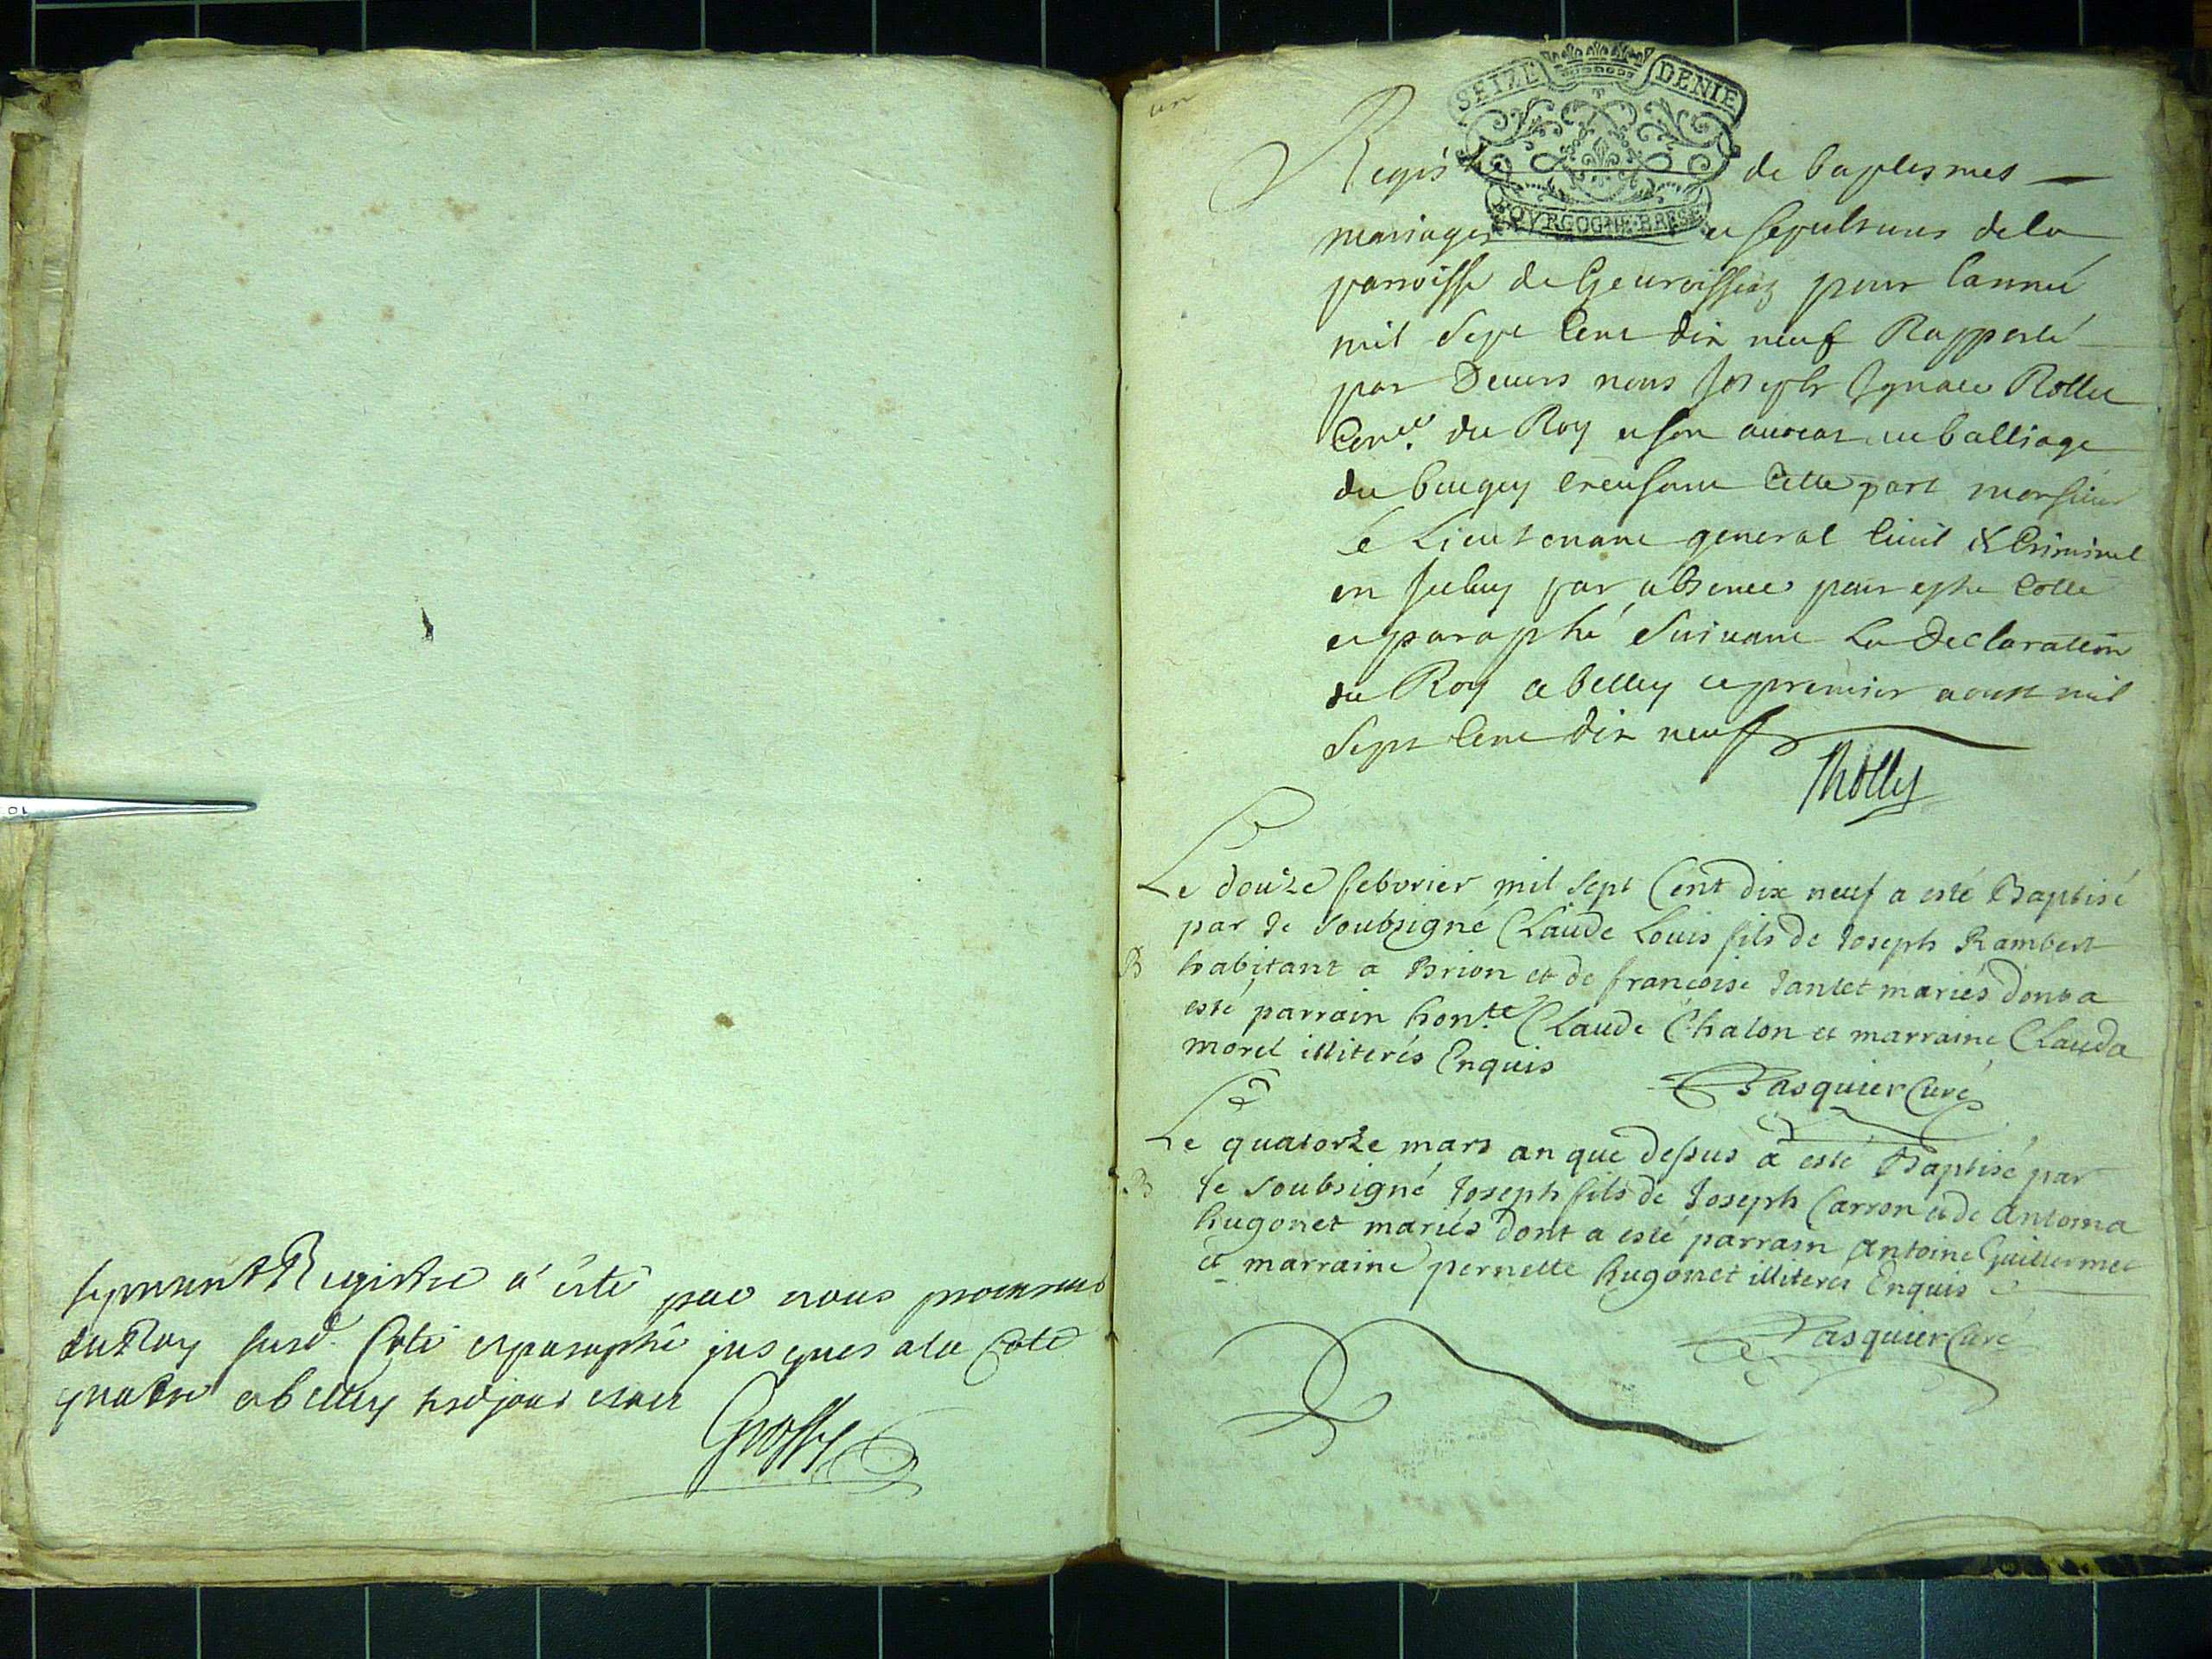 Le present Registre a été par nous procureur
du Roy susd. Coté et paraphé jusques a la Cote
quatre a belley lesd jour et an
Grossy
un
SEIZE DENIE
BOVRGOGNE·BRESSE
Regis de baptesmes
mariages et sepultures de la
parroisse de Geuroissiaz pour l'année
mil Sept Cent dix neuf Rapporté
par Devers nous Joseph Ignace Rollie
Con.er du Roy et son avocat au balliage
du bugey Creusant Cette part monsieur
Le Lieutenant general Civil & Criminel
en Iceluy par absence pour estre Cotte
et paraphé Suivant La Declaration
du Roy a belley ce premier aoust mil
Sept Cent dix neuf
Rolly
Le douze febvrier mil sept Cent dix neuf a esté Baptisé
par Je soubsigné Claude Louis fils de Joseph Rambert
B habitant a Brion et de françoise Jantet mariés dont a
esté parrain hon.te Claude Chalon et marraine Clauda
morel illiterés Enquis
Pasquier Curé
Le quatorze mars an que dessus a esté Baptisé par
B Je soubsigné Joseph fils de Joseph Carron et de Antoina
hugonet mariés dont a esté parrain Antoine Guillermet
et marraine pernette hugonet illiterés Enquis
Pasquier Curé